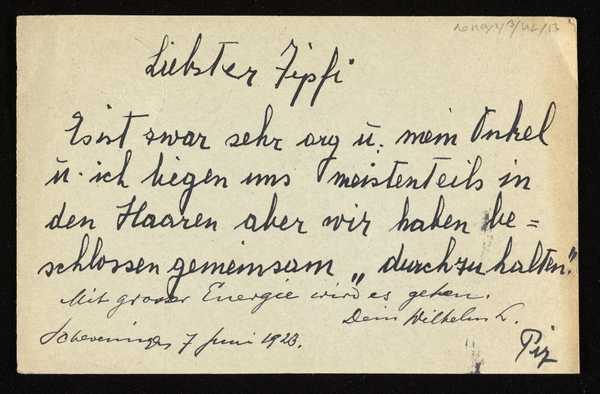 Liebster Zipfi
Es ist zwar sehr arg u. mein Onkel
u. ich liegen uns meistenteils in
den Haaren aber wir haben be=
schlossen gemeinsam „durchzuhalten."
Mit grosser Energie wird es gehen.
Dein Wilhelm L.
Scheveningen 7 Juni 1923.
Piz